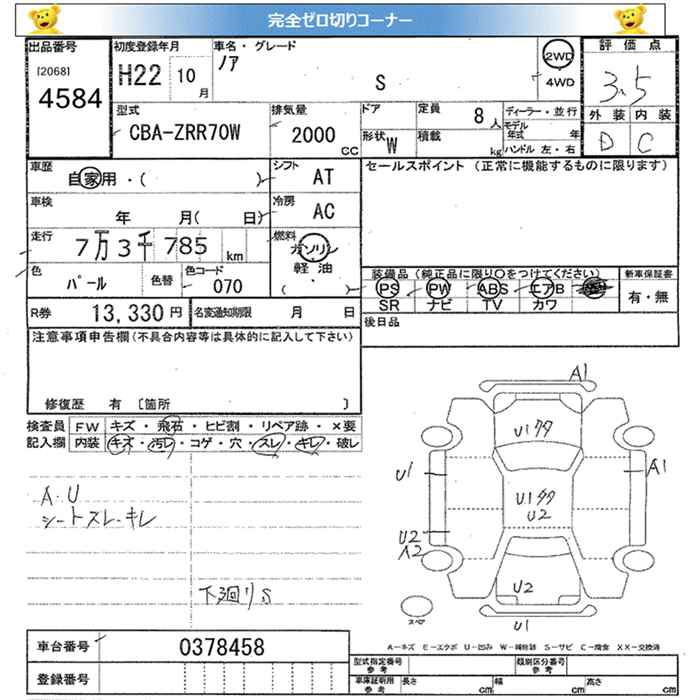 完全ゼロ切りコーナー
出品番号 初度登録年月 車名・グレード 2WD 評価点
[2068] H22 10 月 ノア S 4WD 3.5
4584
型式 排気量 ドア 定員 8 人 ディーラー・並行 外装 内装
CBA-ZRR70W 2000 CC 形状 W 積載 kg モデル年式 年 D C
ハンドル 左・右
車歴 自家用・( ) シフト AT セールスポイント (正常に機能するものに限ります)
車検 年 月( 日) 冷房 AC
走行 7万3千785 km 燃料 ガソリン
軽油
( ・ )
色 パール 色替 色コード 070 装備品 (純正品に限り○をつけてください) 新車保証書
PS PW ABS エアB 有・無
SR ナビ TV カワ
R券 13,330 円 名変通知期限 月 日 後日品
注意事項申告欄(不具合内容等は具体的に記入して下さい)
修復歴 有 〔箇所 〕
検査員 FW キズ・飛石・ヒビ割・リペア跡・×要
記入欄 内装 キズ・汚レ・コゲ・穴・スレ・キレ・破レ
A.U
シートスレ・キレ
下廻りS
A1
U1タタ
U1 A1
U1タタ
U2
U2
A2
U2
スペア U1
A-キズ E-エクボ U-凹み W-補修跡 S-サビ C-腐食 XX-交換済
車台番号 0378458
登録番号
型式指定番号 参考 類別区分番号 参考
車庫証明用 参考 長さ cm 幅 cm 高さ cm